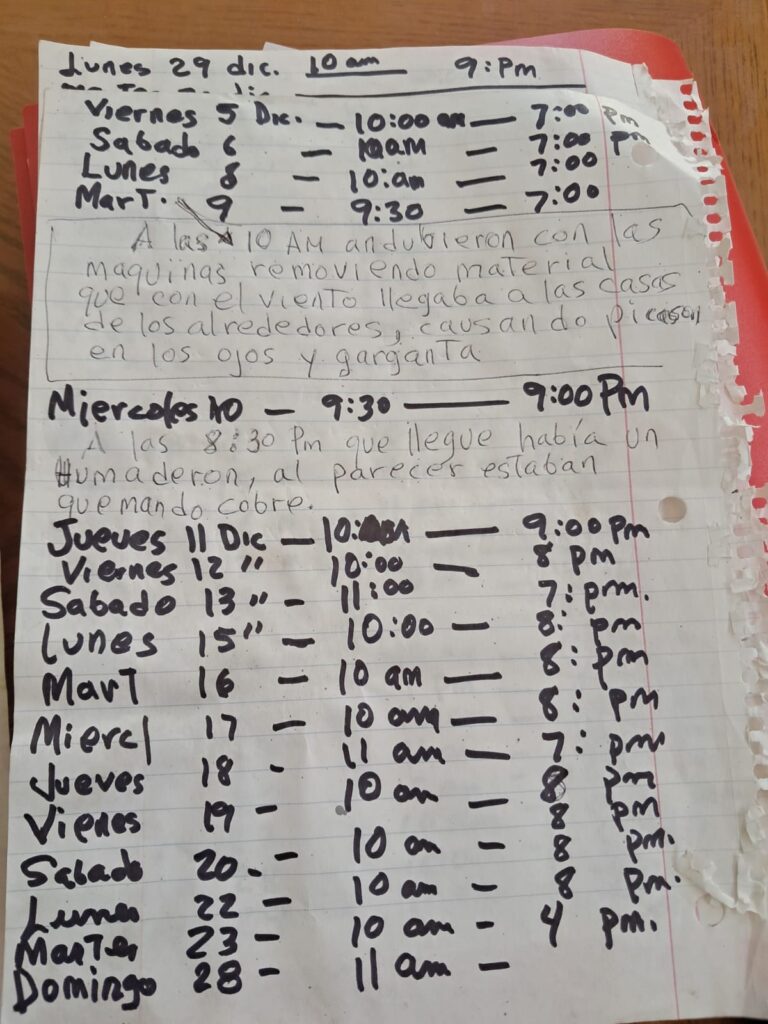 Lunes 29 dic. 10 am 9: Pm
Viernes 5 Dic. — 10:00 am — 7:00 pm
Sabado 6 — 10am — 7:00 pm
Lunes 8 — 10:am — 7:00
MarT. 9 — 9:30 — 7:00
A las 10 AM andubieron con las
maquinas removiendo material
que con el viento llegaba a las casas
de los alrededores, causando picason
en los ojos y garganta
Miercoles 10 — 9:30 — 9:00 Pm
A las 8:30 Pm que llegue había un
Humaderon, al parecer estaban
quemando cobre.
Jueves 11 Dic — 10: AM — 9:00 Pm
Viernes 12 " 10:00 — 8 pm
Sabado 13 " - 11:00 7: pm.
Lunes 15 " - 10:00 — 8: pm
MarT 16 - 10 am — 8: pm
Mierc 17 - 10 am — 8: pm
Jueves 18 - 11 am — 7: pm
Vienes 19 - 10 am — 8 pm
Sabado 20. - 10 am — 8 pm
Lunes 22 - 10 am — 8 pm.
Martes 23 - 10 am - 8 pm.
Domingo 28 - 11 am — 4 pm.